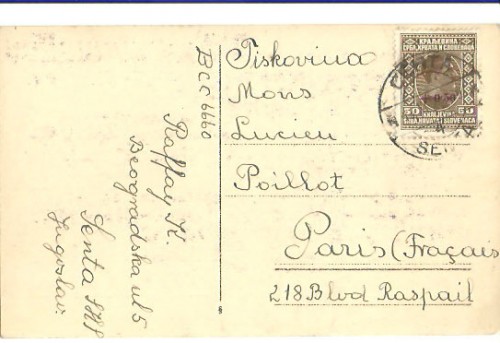 BCC 6660
Raffay K.
Beogradska ul 5
Senta SHS
Jugoslav.
Tiskovina
Mons
Lucien
Poillot
Paris (Fraçais
218 Blvd Raspail
КРАЉЕВИНА
СРБА, ХРВАТА И СЛОВЕНАЦА
50 50
KRALJEVINA
SRBA, HRVATA I SLOVENACA